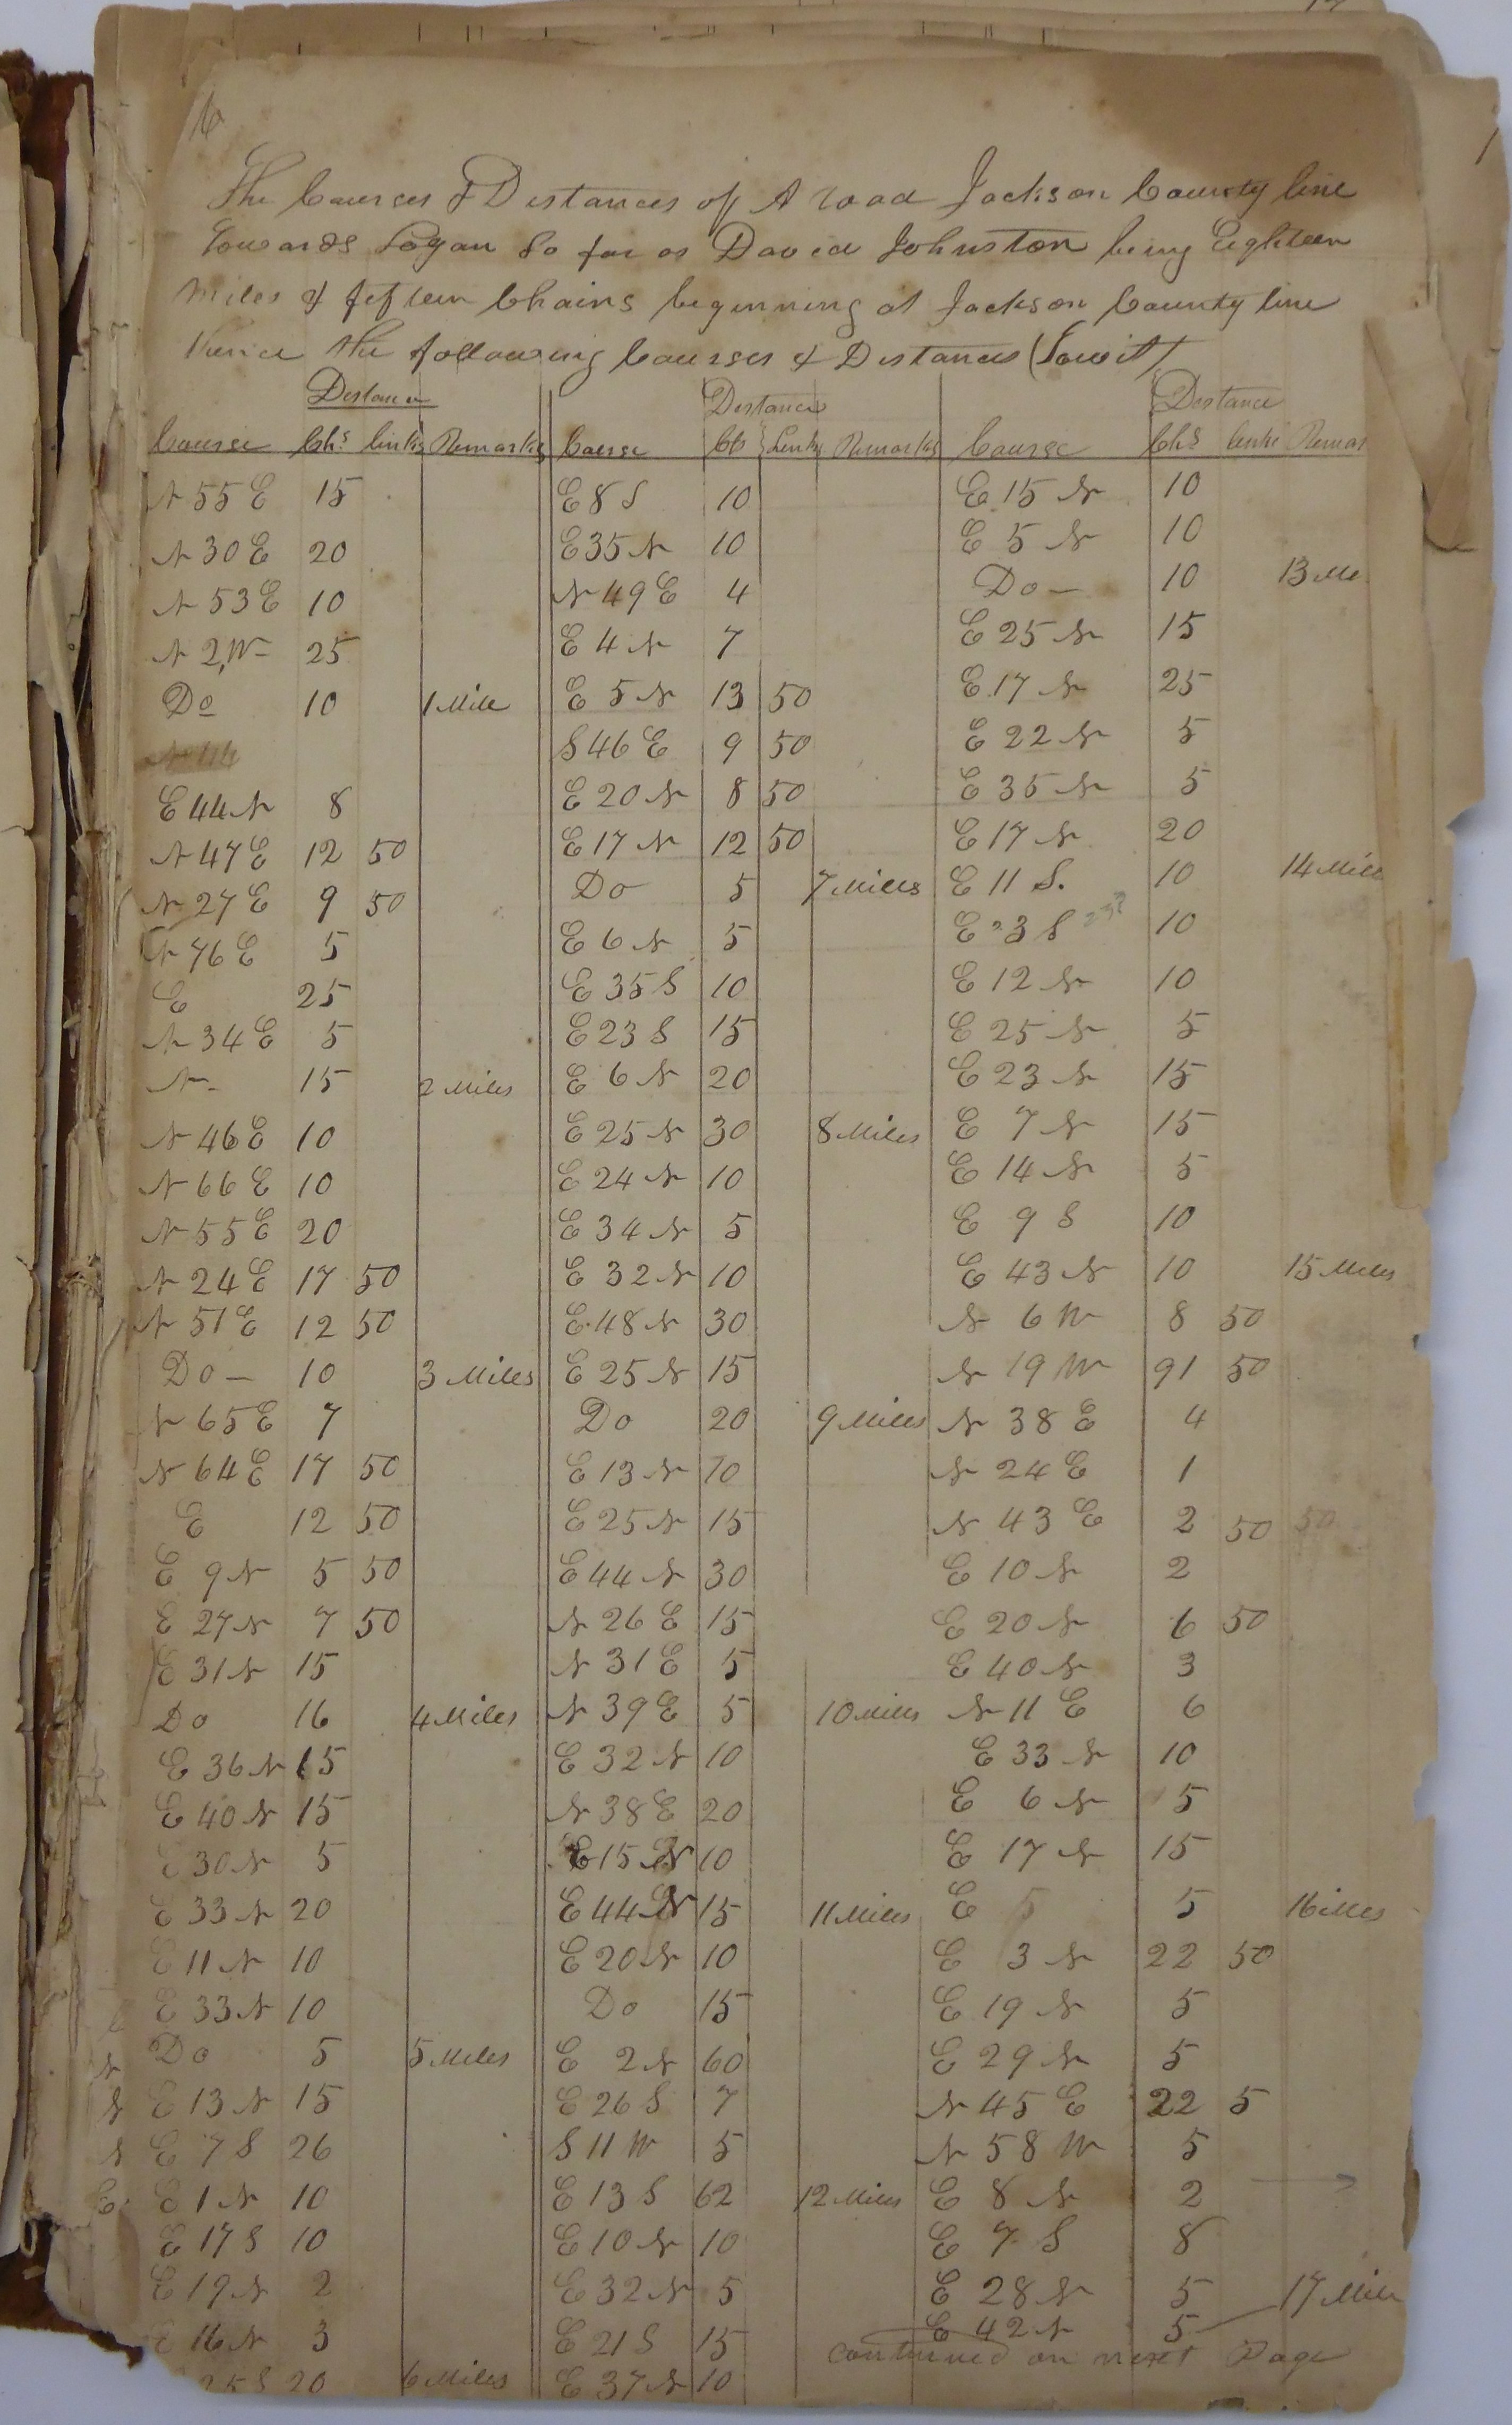 6
The Courses & Distances of A road Jackson County line
Towards Logan So far as David Johnston being Eighteen
Miles & fifteen Chains beginning at Jackson County line
thence the following Courses & Distances (Towit)
Distance Distance Distance
Course Chs. links Remarks Course Ch Links Remarks Course Chs links Remar
N 55 E 15 E 8 S 10 E 15 N 10
N 30 E 20 E 35 N 10 E 5 N 10
N 53 E 10 N 49 E 4 Do 10 13 Mi
N 2 W 25 E 4 N 7 E 25 N 15
Do 10 1 Mile E 5 N 13 50 E 17 N 25
S 46 E 9 50 E 22 N 5
E 44 N 8 E 20 N 8 50 E 35 N 5
N 47 E 12 50 E 17 N 12 50 E 17 N 20
N 27 E 9 50 Do 5 7 Miles E 11 S. 10 14 Mile
N 76 E 5 E 6 N 5 E 23 S 10
E 25 E 35 S 10 E 12 N 10
N 34 E 5 E 23 S 15 E 25 N 5
N 15 2 Miles E 6 N 20 E 23 N 15
N 46 E 10 E 25 N 30 8 Miles E 7 N 15
N 66 E 10 E 24 N 10 E 14 N 5
N 55 E 20 E 34 N 5 E 9 S 10
N 24 E 17 50 E 32 N 10 E 43 N 10 15 Miles
N 51 E 12 50 E 48 N 30 N 6 W 8 50
Do 10 3 Miles E 25 N 15 N 19 W 91 50
N 65 E 7 Do 20 9 Miles N 38 E 4
N 64 E 17 50 E 13 N 10 N 24 E 1
E 12 50 E 25 N 15 N 43 E 2 50 50
E 9 N 5 50 E 44 N 30 E 10 N 2
E 27 N 7 50 N 26 E 15 E 20 N 6 50
E 31 N 15 N 31 E 5 E 40 N 3
Do 16 4 Miles N 39 E 5 10 Miles N 11 E 6
E 36 N 15 E 32 N 10 E 33 N 10
E 40 N 15 N 38 E 20 E 6 N 5
E 30 N 5 E 15 N 10 E 17 N 15
E 33 N 20 E 44 N 15 11 Miles E 5 5 16 iles
E 11 N 10 E 20 N 10 E 3 N 22 50
E 33 N 10 Do 15 E 19 N 5
Do 5 5 Miles E 2 N 60 E 29 N 5
E 13 N 15 E 26 S 7 N 45 E 22 5
E 7 S 26 S 11 W 5 N 58 W 5
E 1 N 10 E 13 S 62 12 Miles E 8 N 2
E 17 S 10 E 10 N 10 E 7 S 8
E 19 N 2 E 32 N 5 E 28 N 5 17 Miles
E 16 N 3 E 21 S 15 E 42 N 5
25 S 20 6 Miles E 37 N 10 continued on next Page